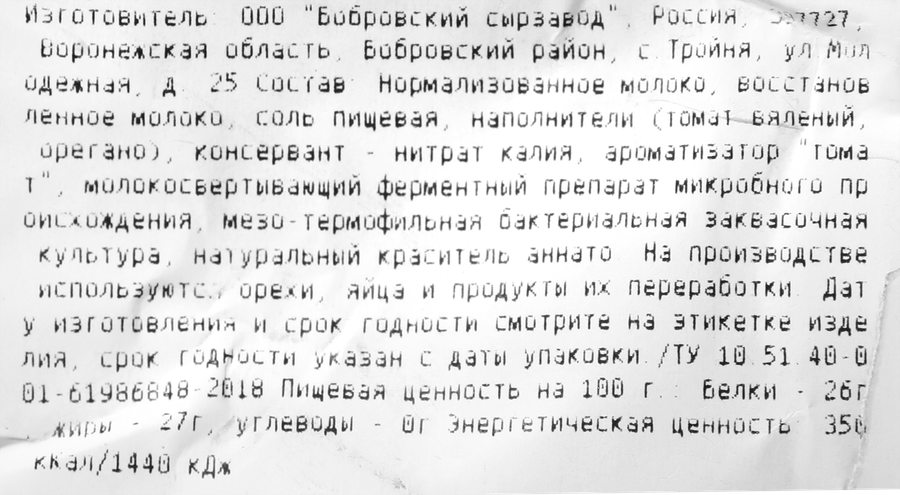 Изготовитель: ООО "Бобровский сырзавод", Россия,
Воронежская область, Бобровский район, с.Тройня, ул.Мол
одежная, д. 25 Состав: Нормализованное молоко, восстанов
ленное молоко, соль пищевая, наполнители (томат вяленый,
орегано), консервант - нитрат калия, ароматизатор "тома
т", молокосвертывающий ферментный препарат микробного пр
оисхождения, мезо-термофильная бактериальная заквасочная
культура, натуральный краситель аннато. На производстве
используются орехи, яйца и продукты их переработки. Дат
у изготовления и срок годности смотрите на этикетке изде
лия, срок годности указан с даты упаковки./ТУ 10.51.40-0
01-61986848-2018 Пищевая ценность на 100 г.: Белки - 26г
, жиры - 27г, углеводы - 0г Энергетическая ценность: 350
ккал/1440 кДж